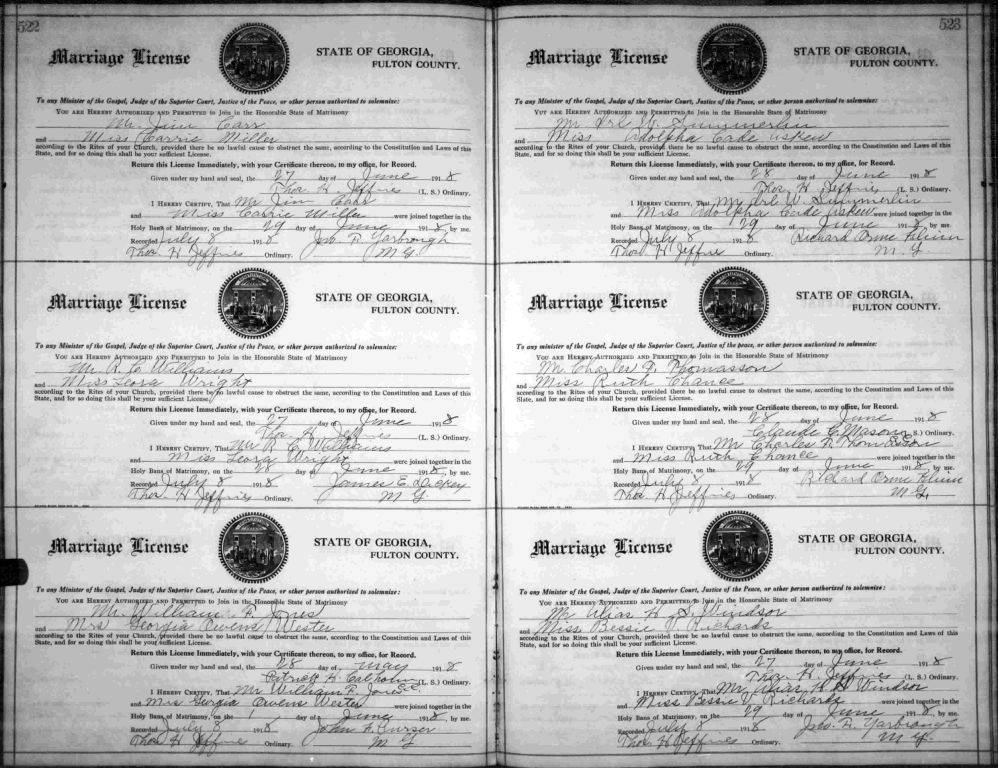 522
Marriage License
STATE OF GEORGIA,
FULTON COUNTY.
To any Minister of the Gospel, Judge of the Superior Court, Justice of the Peace, or other person authorized to solemnize:
YOU ARE HEREBY AUTHORIZED AND PERMITTED to Join in the Honorable State of Matrimony
Mr. Jim Carr
and Miss Carrie Miller
according to the Rites of your Church, provided there be no lawful cause to obstruct the same, according to the Constitution and Laws of this
State, and for so doing this shall be your sufficient License.
Return this License Immediately, with your Certificate thereon, to my office, for Record.
Given under my hand and seal, the 27 day of June 1918
Thos. H. Jeffries (L. S.) Ordinary.
I HEREBY CERTIFY, That Mr Jim Carr
and Miss Carrie Miller were joined together in the
Holy Bans of Matrimony, on the 29 day of June 1918, by me.
Recorded July 8 1918 Jno. P. Yarbrough
Thos H Jeffries Ordinary. M G
Marriage License
STATE OF GEORGIA,
FULTON COUNTY.
To any Minister of the Gospel, Judge of the Superior Court, Justice of the Peace, or other person authorized to solemnize:
YOU ARE HEREBY AUTHORIZED AND PERMITTED to Join in the Honorable State of Matrimony
Mr. R. C. Williams
and Miss Leora Wright
according to the Rites of your Church, provided there be no lawful cause to obstruct the same, according to the Constitution and Laws of this
State, and for so doing this shall be your sufficient License.
Return this License Immediately, with your Certificate thereon, to my office, for Record.
Given under my hand and seal, the 27 day of June 1918
Thos. H. Jeffries (L. S.) Ordinary.
I HEREBY CERTIFY, That Mr R C Williams
and Miss Leora Wright were joined together in the
Holy Bans of Matrimony, on the 28 day of June 1918, by me.
Recorded July 8 1918 James E. Dickey
Thos. H Jeffries Ordinary. M G.
Marriage License
STATE OF GEORGIA,
FULTON COUNTY.
To any Minister of the Gospel, Judge of the Superior Court, Justice of the Peace, or other person authorized to solemnize:
YOU ARE HEREBY AUTHORIZED AND PERMITTED to Join in the Honorable State of Matrimony
Mr. William F. Jones
and Mrs Georgia Owens Wester
according to the Rites of your Church, provided there be no lawful cause to obstruct the same, according to the Constitution and Laws of this
State, and for so doing this shall be your sufficient License.
Return this License Immediately, with your Certificate thereon, to my office, for Record.
Given under my hand and seal, the 28 day of May 1918
Patrick H. Calhoun (L. S.) Ordinary.
I HEREBY CERTIFY, That Mr William F. Jones
and Mrs Georgia Owens Wester were joined together in the
Holy Bans of Matrimony, on the 1 day of June 1918, by me.
Recorded July 8 1918 John F. Purser
Thos H Jeffries Ordinary. M G
523
Marriage License
STATE OF GEORGIA,
FULTON COUNTY.
To any Minister of the Gospel, Judge of the Superior Court, Justice of the Peace, or other person authorized to solemnize:
YOU ARE HEREBY AUTHORIZED AND PERMITTED to Join in the Honorable State of Matrimony
Mr Arl W. Summerlin
and Miss Adolpha Cade Askew
according to the Rites of your Church, provided there be no lawful cause to obstruct the same, according to the Constitution and Laws of this
State, and for so doing this shall be your sufficient License.
Return this License Immediately, with your Certificate thereon, to my office, for Record.
Given under my hand and seal, the 28 day of June 1918
Thos. H. Jeffries (L. S.) Ordinary.
I HEREBY CERTIFY, That Mr Arl W. Summerlin
and Miss Adolpha Cade Askew were joined together in the
Holy Bans of Matrimony, on the 29 day of June 1918, by me.
Recorded July 8 1918 Richard Orme Flinn
Thos H Jeffries Ordinary. M G
Marriage License
STATE OF GEORGIA,
FULTON COUNTY.
To any minister of the Gospel, Judge of the Superior Court, Justice of the peace, or other person authorized to solemnize:
YOU ARE HEREBY AUTHORIZED AND PERMITTED to Join in the Honorable State of Matrimony
Mr Charles D. Thomasson
and Miss Ruth Chance
according to the Rites of your Church, provided there be no lawful cause to obstruct the same, according to the Constitution and Laws of this
State, and for so doing this shall be your sufficient License.
Return this License Immediately, with your Certificate thereon, to my office, for Record.
Given under my hand and seal, the 28 day of June 1918
Claude C. Mason (L. S.) Ordinary.
I HEREBY CERTIFY, That Mr Charles D. Thomasson
and Miss Ruth Chance were joined together in the
Holy Bans of Matrimony, on the 29 day of June 1918, by me.
Recorded July 8 1918 Richard Orme Flinn
Thos H. Jeffries Ordinary. M G,
Marriage License
STATE OF GEORGIA,
FULTON COUNTY.
To any Minister of the Gospel, Judge of the Superior Court, Justice of the Peace, or other person authorized to solemnize:
YOU ARE HEREBY AUTHORIZED AND PERMITTED to Join in the Honorable State of Matrimony
Mr Alias H. S. Windsor
and Miss Bessie V Richards
according to the Rites of your Church, provided there be no lawful cause to obstruct the same, according to the Constitution and Laws of this
State, and for so doing this shall be your sufficient License.
Return this License Immediately, with your Certificate thereon, to my office, for Record.
Given under my hand and seal, the 27 day of June 1918
Thos. H. Jeffries (L. S.) Ordinary.
I HEREBY CERTIFY, That Mr Alias H Windsor
and Miss Bessie V Richards were joined together in the
Holy Bans of Matrimony, on the 29 day of June 1918, by me.
Recorded July 8 1918 Jno. P. Yarbrough
Thos. H Jeffries Ordinary. M G.